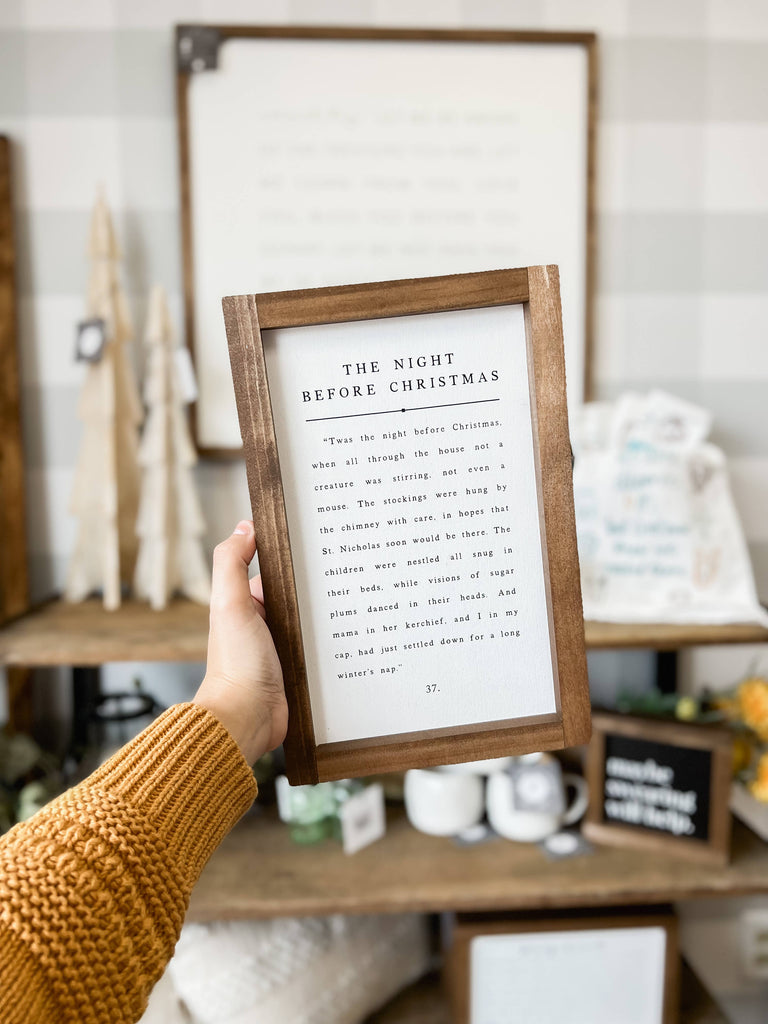 THE NIGHT
BEFORE CHRISTMAS
“Twas the night before Christmas,
when all through the house not a
creature was stirring, not even a
mouse. The stockings were hung by
the chimney with care, in hopes that
St. Nicholas soon would be there. The
children were nestled all snug in
their beds, while visions of sugar
plums danced in their heads. And
mama in her kerchief, and I in my
cap, had just settled down for a long
winter's nap.”
37.
maybe
swearing
will help.